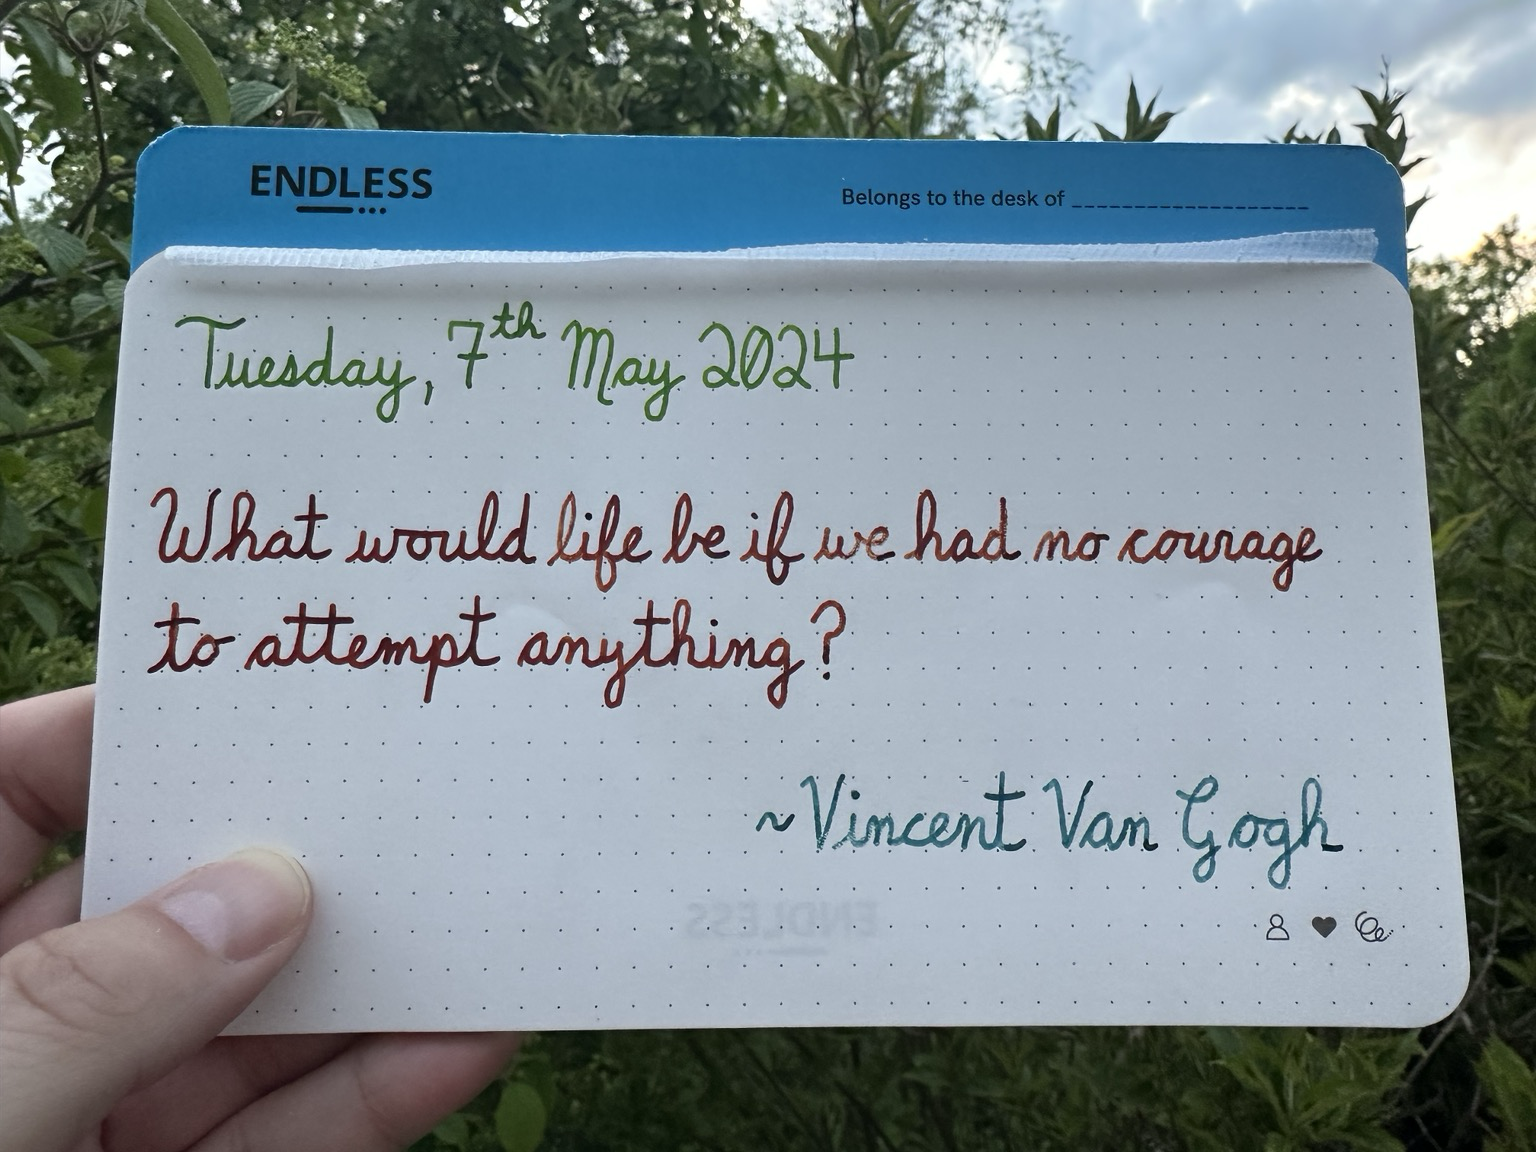 ENDLESS
Belongs to the desk of ____________________
Tuesday, 7th May 2024
What would life be if we had no courage
to attempt anything?
~Vincent Van Gogh
ENDLESS